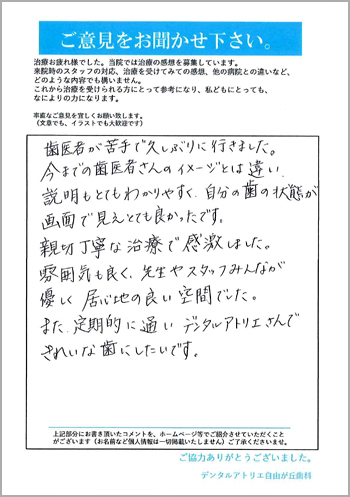 ご意見をお聞かせ下さい。
治療お疲れ様でした。当院では治療の感想を募集しています。
来院時のスタッフの対応、治療を受けてみての感想、他の病院との違いなど、
どのような内容でも構いません。
これから治療を受けられる方にとって参考になり、私どもにとっても、
なによりの力になります。
率直なご意見を宜しくお願い致します。
(文章でも、イラストでも大歓迎です)
歯医者が苦手で久しぶりに行きました。
今までの歯医者さんのイメージとは違い、
説明もとてもわかりやすく、自分の歯の状態が
画面で見えとても良かったです。
親切丁寧な治療で感激しました。
雰囲気も良く、先生やスタッフみんなが
優しく居心地の良い空間でした。
また、定期的に通いデンタルアトリエさんで
きれいな歯にしたいです。
上記部分にお書き頂いたコメントを、ホームページ等でご紹介させていただくこと
がございます(お名前など個人情報は一切掲載いたしません)ご了承くださいませ。
ご協力ありがとうございました。
デンタルアトリエ自由が丘歯科